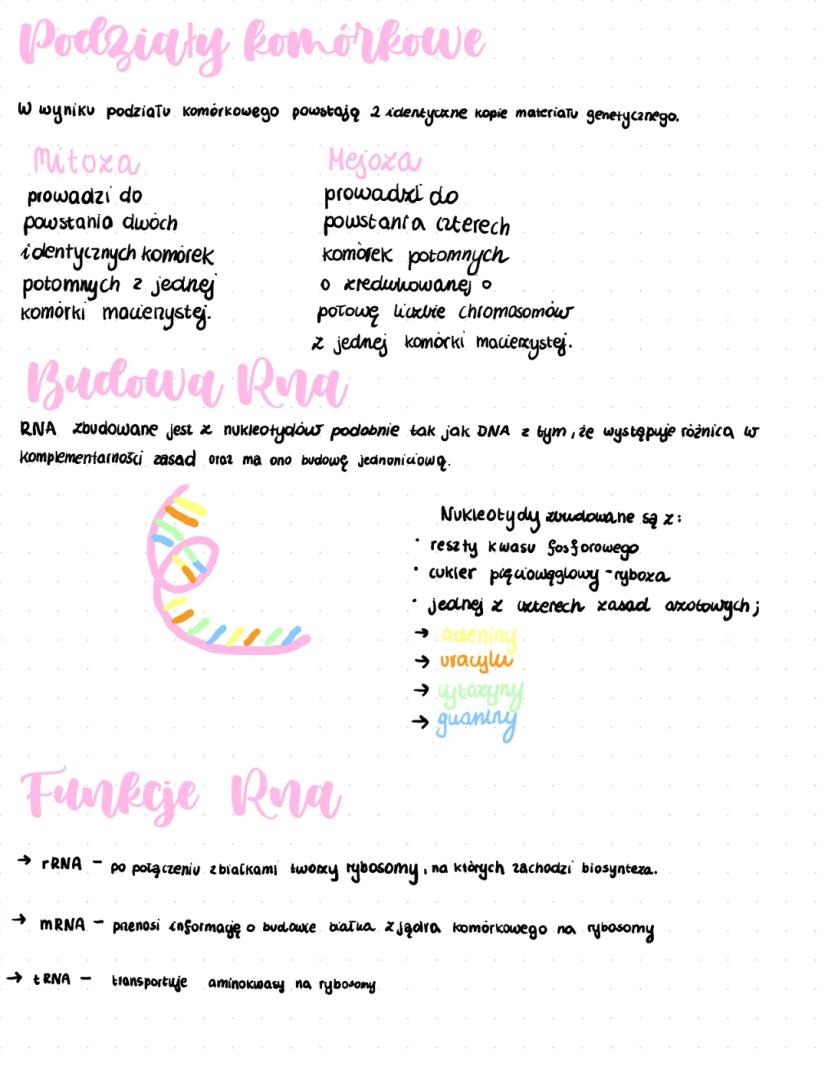 Podziały komórkowe
W wyniku podziału komórkowego powstają 2 identyczne kopie materiału genetycznego.
Mitoza
prowadzi do
powstania dwóch
identycznych komórek
potomnych z jednej
komórki macierzystej.
Mejoza
prowadzi do
powstania czterech
komórek potomnych
o zredukowanej o
połowę liczbie chromosomów
z jednej komórki macierzystej.
Budowa Rna
RNA zbudowane jest z nukleotydów podobnie tak jak DNA z tym, że występuje różnica w
komplementarności zasad oraz ma ono budowę jednoniciową.
Nukleotydy zbudowane są z:
· reszty kwasu fosforowego
· cukier pięciowęglowy - ryboza
· jednej z czterech zasad azotowych;
→ adeniny
→ uracylu
→ cytozyny
→ guaniny
Funkcje Rna
→ rRNA - po połączeniu z białkami tworzy rybosomy, na których zachodzi biosynteza.
→ mRNA - przenosi informację o budowie białka z jądra komórkowego na rybosomy
→ tRNA - transportuje aminokwasy na rybosomy